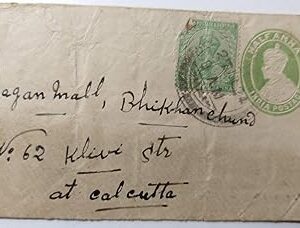 HALF ANNA
INDIA POSTAGE
agan mall, Bhikhanchund
No: 62 Klivi Str
at Calcutta